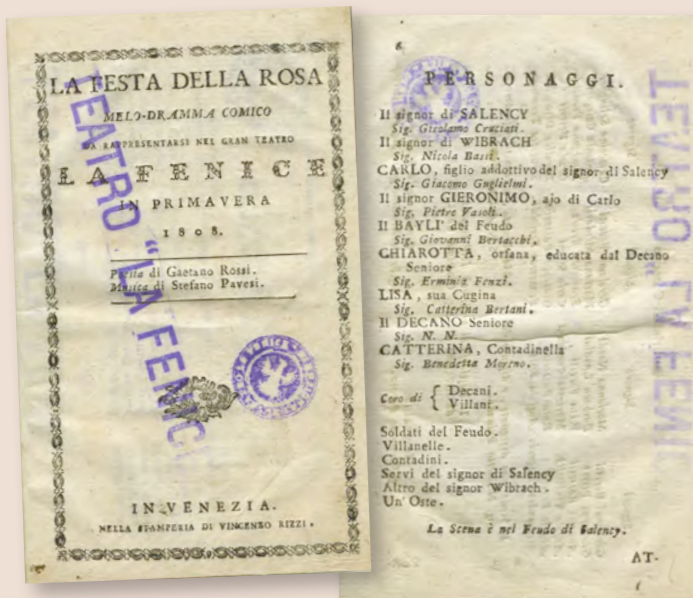 LA FESTA DELLA ROSA
MELO-DRAMMA COMICO
DA RAPPRESENTARSI NEL GRAN TEATRO
LA FENICE
IN PRIMAVERA
1808.
Poesia di Gaetano Rossi.
Musica di Stefano Pavesi.
IN VENEZIA.
NELLA STAMPERIA DI VINCENZO RIZZI.
TEATRO "LA FENICE
6
PERSONAGGI.
Il signor di SALENCY
Sig. Girolamo Cruciati.
Il signor di WIBRACH
Sig. Nicola Bassi.
CARLO, figlio addottivo del signor di Salency
Sig. Giacomo Guglielmi.
Il signor GIERONIMO, ajo di Carlo
Sig. Pietro Vasoli.
Il BAYLI' del Feudo
Sig. Giovanni Bertacchi.
CHIAROTTA, orfana, educata dal Decano
Seniore
Sig. Erminia Fenzi.
LISA, sua Cugina
Sig. Catterina Bertani.
Il DECANO Seniore
Sig. N. N.
CATTERINA, Contadinella
Sig. Benedetta Moreno.
Coro di { Decani.
Villani.
Soldati del Feudo.
Villanelle.
Contadini.
Servi del signor di Salency
Altro del signor Wibrach.
Un' Oste.
La Scena è nel Feudo di Salency.
AT-